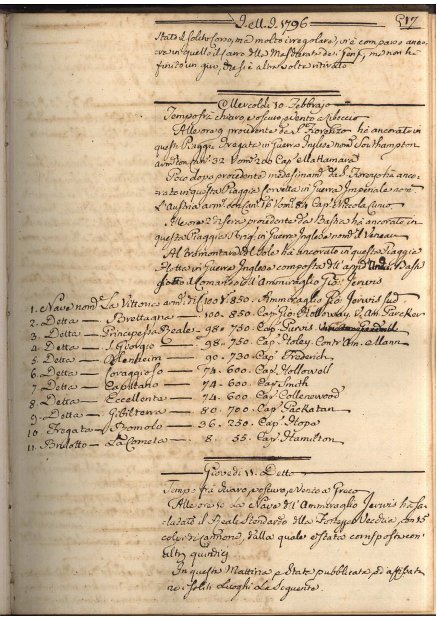 Dell'A. 1796
517
stato il solito Corso, ma molto irregolare, vi è comparso anco
ra in quello il Carro delle Maschere
finito un giro, che si è altre volte ritirato
Mercoldi 10 Febbrajo
Tempo frà chiaro e oscuro, e vento a Libeccio
Alle ore 9 proveniente da S. Fiorenzo hà ancorato in
questa Piaggia Fregata in Guerra Inglese nom. Southampton
arm. con 32 Uom. 260 Cap. Macnamara
Poco dopo proveniente medesimamte da S. Fiorenzo hà anco
rato in questa Piaggia Corvetta in Guerra Imperiale nom.
L'Austria arm. con Can. Uom. 84 Cap. Niccola
Alle ore 2 di sera proveniente da Bastia hà ancorato in
questa Piaggia Brig. in Guerra Inglese nom.
Al tramontare del Sole hà ancorato in questa Piaggia
Flotta in Guerra Inglese composta di
sotto il Comando dell'Ammiraglio Gio. Jervis
1. Nave nom. La Vittoria arm. di 100 V. 850. Ammiraglio Gio. Jervis sud.
2. Detta — Brettagna — 100. 850. Cap. Gio. Holloway V. Am. Parcker
3. Detta — Principessa Reale. 98. 750. Cap. Purvis
4. Detta — S. Giorgio — 98. 750. Cap. Foley. Contr'Am. Mann
5. Detta — Blenheim — 90. 730. Cap. Frederich
6. Detta — Coraggioso — 74. 600. Cap. Hollowell
7. Detta — Capitano — 74. 600. Cap. Smith
8. Detta — Eccellente — 74. 600. Cap. Collenewood
9. Detta — Gibilterra — 80. 700. Cap. Packatan
10 Fregata — Romolo — 36. 250. Cap. Hope
11. Brulotto — La Cometa — 8. 55. Cap. Hamilton
Giovedi 11. Detto
Tempo frà chiaro, e oscuro, e vento a Greco
Alle ore la Nave dell'Ammiraglio Jervis hà sa-
lutato il Reale Stendardo della Fortezza Vecchia, con 15
colpi di cannone, dalla quale è stata corrisposta con
altri quindici
In questa Mattina è stata pubblicata, ed affissa
ne soliti Luoghi La Seguente.